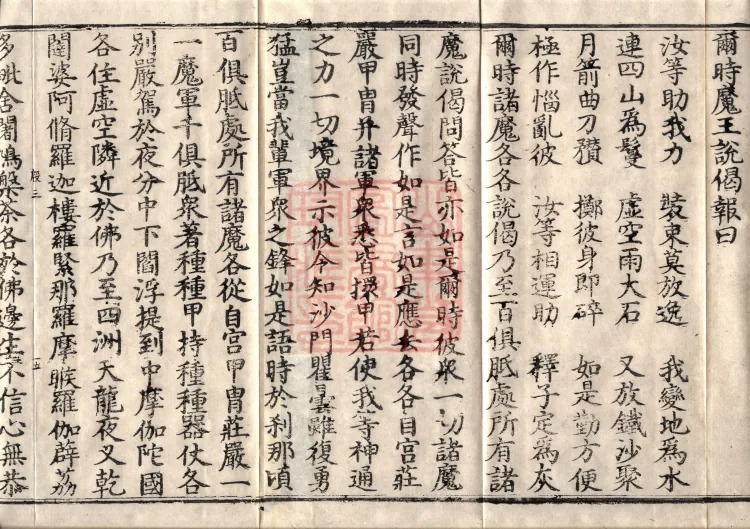 爾時魔王說偈報曰
汝等助我力 裝束莫放逸 我變地爲水
連四山爲鬘 虛空雨大石 又放鐵沙聚
月箭曲刀 擲彼身即碎 如是勤方便
極作惱亂彼 汝等相運助 釋子定爲灰
爾時諸魔各各說偈乃至百俱胝處所有諸
魔說偈問答皆亦如是爾時彼衆一切諸魔
同時發聲作如是言如是應去各各自宮莊
嚴甲冑并諸軍衆悉皆擐甲若使我等神通
之力一切境界示彼令知沙門瞿曇雖復勇
猛豈當我輩軍衆之鋒如是語時於刹那頃
百俱胝處所有諸魔各從自宮甲冑莊嚴一
一魔軍千俱胝衆著種種甲持種種器仗各
別嚴駕於夜分中下閻浮提到中摩伽陀國
各住虛空隣近於佛乃至四洲天龍夜叉乾
闥婆阿脩羅迦樓羅緊那羅摩睺羅伽薜荔
多毗舍闍鳩槃荼各於佛邊生不信心無恭